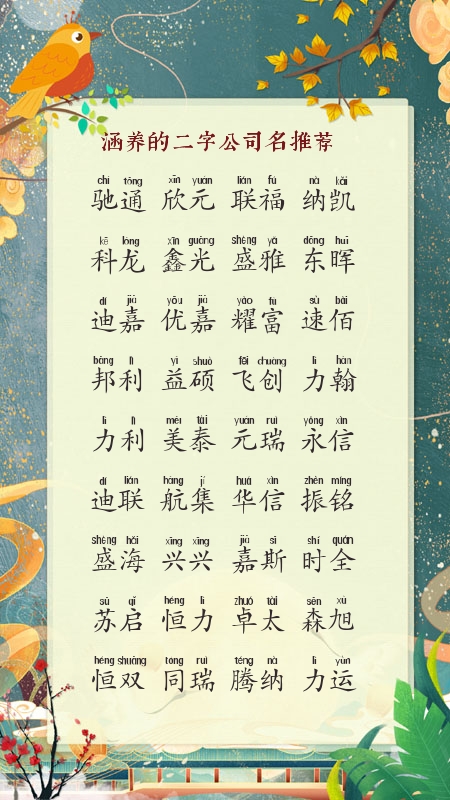 涵养的二字公司名推荐
chí tōng xīn yuán lián fú nà kǎi
驰通 欣元 联福 纳凯
kē lóng xīn guāng shèng yǎ dōng huī
科龙 鑫光 盛雅 东晖
dí jiā yōu jiā yào fù sù bǎi
迪嘉 优嘉 耀富 速佰
bāng lì yì shuò fēi chuàng lì hàn
邦利 益硕 飞创 力翰
lì lì měi tài yuán ruì yǒng xìn
力利 美泰 元瑞 永信
dí lián háng jí huá xìn zhèn míng
迪联 航集 华信 振铭
shèng hǎi xīng xīng jiā sī shí quán
盛海 兴兴 嘉斯 时全
sū qǐ héng lì zhuó tài sēn xù
苏启 恒力 卓太 森旭
héng shuāng tóng ruì téng nà lì yùn
恒双 同瑞 腾纳 力运